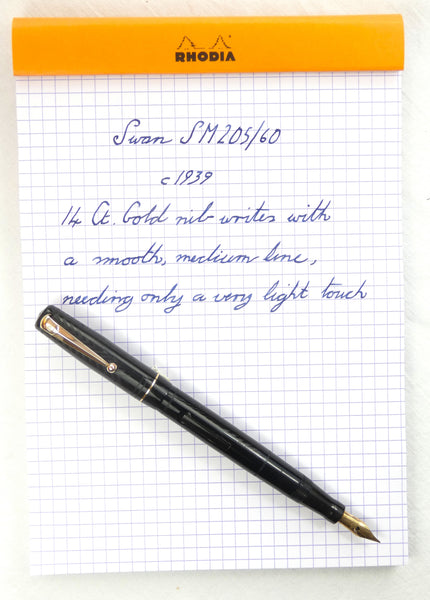 RHODIA
Swan SM205/60
c1939
14 Ct. Gold nib writes with
a smooth, medium line,
needing only a very light touch